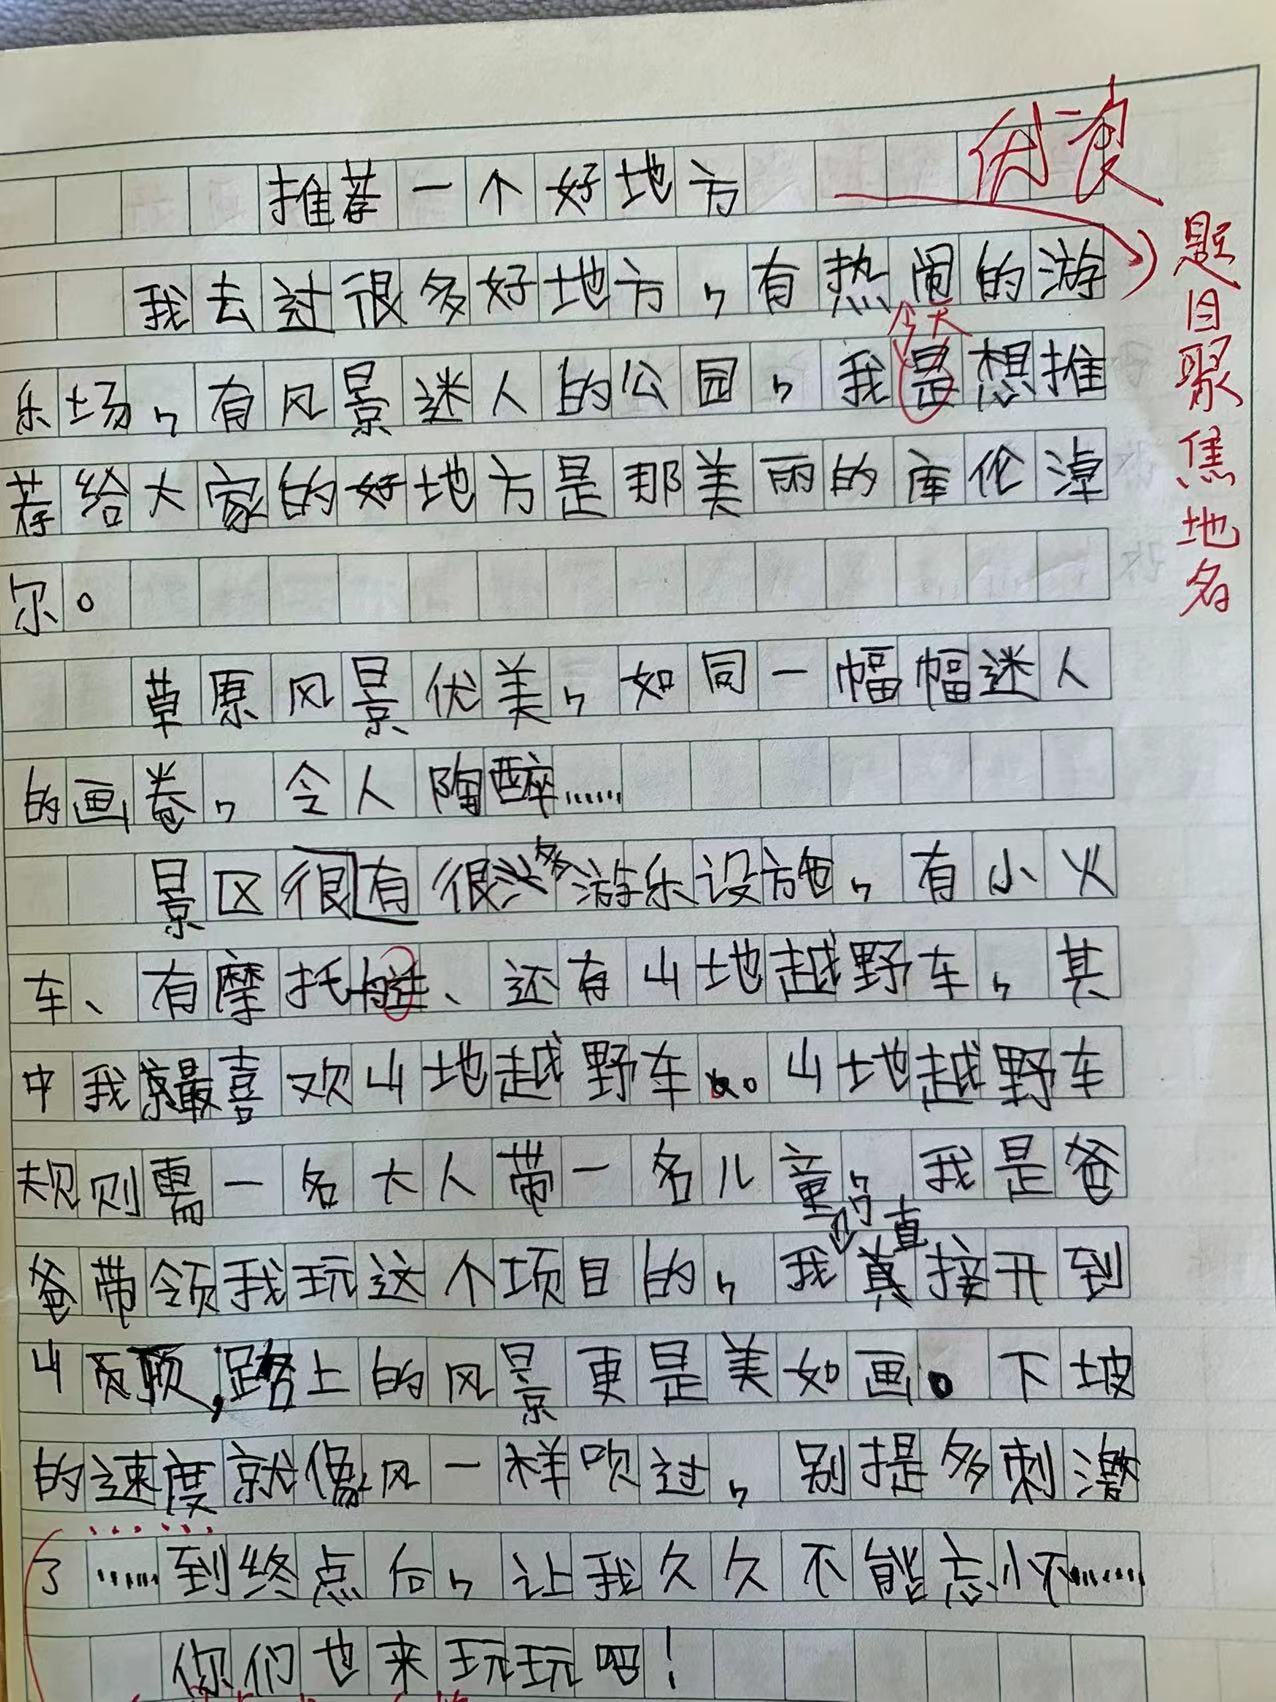 优
推荐一个好地方
题目聚焦地名
我去过很多好地方，有热闹的游
今天
乐场，有风景迷人的公园，我是想推
荐给大家的好地方是那美丽的库伦淖
尔。
草原风景优美，如同一幅幅迷人
的画卷，令人陶醉……
景区很有很多游乐设施，有小火
车、有摩托艇、还有山地越野车，其
中我最喜欢山地越野车。山地越野车
规则需一名大人带一名儿童，我是爸
的直
爸带领我玩这个项目的，我真接开到
山顶，路上的风景更是美如画。下坡
的速度就像风一样吹过，别提多刺激
了……到终点后，让我久久不能忘怀……
你们也来玩玩吧！